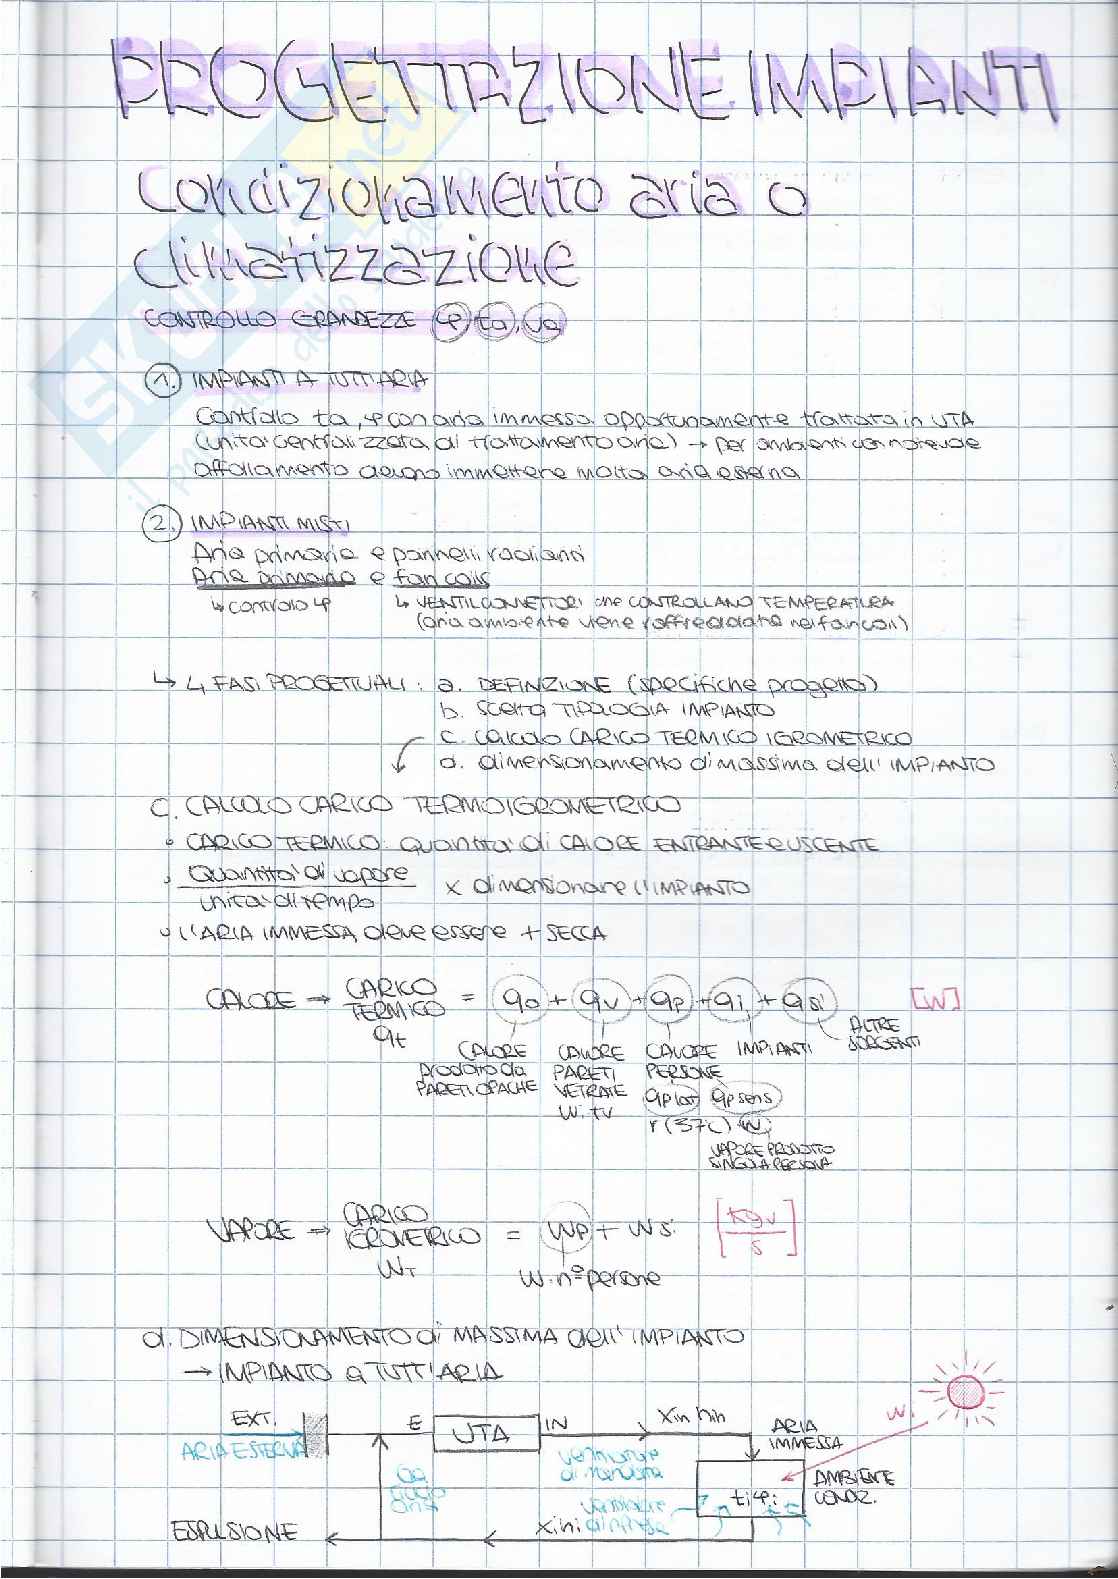 PROGETTAZIONE IMPIANTI
Condizionamento aria o
climatizzazione
CONTROLLO GRANDEZZE φ, ta, va
1. IMPIANTI A TUTT'ARIA
Controllo ta, φ con aria immessa opportunamente trattata in UTA
(unita' centralizzata di trattamento aria) → per ambienti con notevole
affollamento devono immettere molta aria esterna
2. IMPIANTI MISTI
Aria primaria e pannelli radianti
Aria primaria e fan coils
↳ controllo φ ↳ VENTILCONVETTORI che CONTROLLANO TEMPERATURA
(aria ambiente viene raffreddata nei fan coil)
↳ 4 FASI PROGETTUALI: a. DEFINIZIONE (specifiche progetto)
b. scelta TIPOLOGIA IMPIANTO
c. calcolo CARICO TERMICO IGROMETRICO
d. dimensionamento di massima dell'IMPIANTO
C. CALCOLO CARICO TERMOIGROMETRICO
• CARICO TERMICO: quantita' di CALORE ENTRANTE e USCENTE
• Quantita' di vapore / unita' di tempo x dimensionare l'IMPIANTO
• l'ARIA IMMESSA deve essere + SECCA
CALORE → CARICO TERMICO qt = qo + qv + qp + qi + qsi [W]
CALORE prodotto da PARETI OPACHE
CALORE PARETI VETRATE
CALORE PERSONE
IMPIANTI
ALTRE SORGENTI
qp lat qp sens
VAPORE PRODOTTO SINGOLA PERSONA
VAPORE → CARICO IGROMETRICO WT = Wp + Wsi [kgv/s]
W. n° persone
d. DIMENSIONAMENTO di MASSIMA dell'IMPIANTO
→ IMPIANTO a TUTT'ARIA
EXT. E UTA IN Xin hin
ARIA ESTERNA
ARIA IMMESSA
di mandata
ti φi
AMBIENTE CONDIZ.
di ripresa
ESPULSIONE
SKUOLA.net